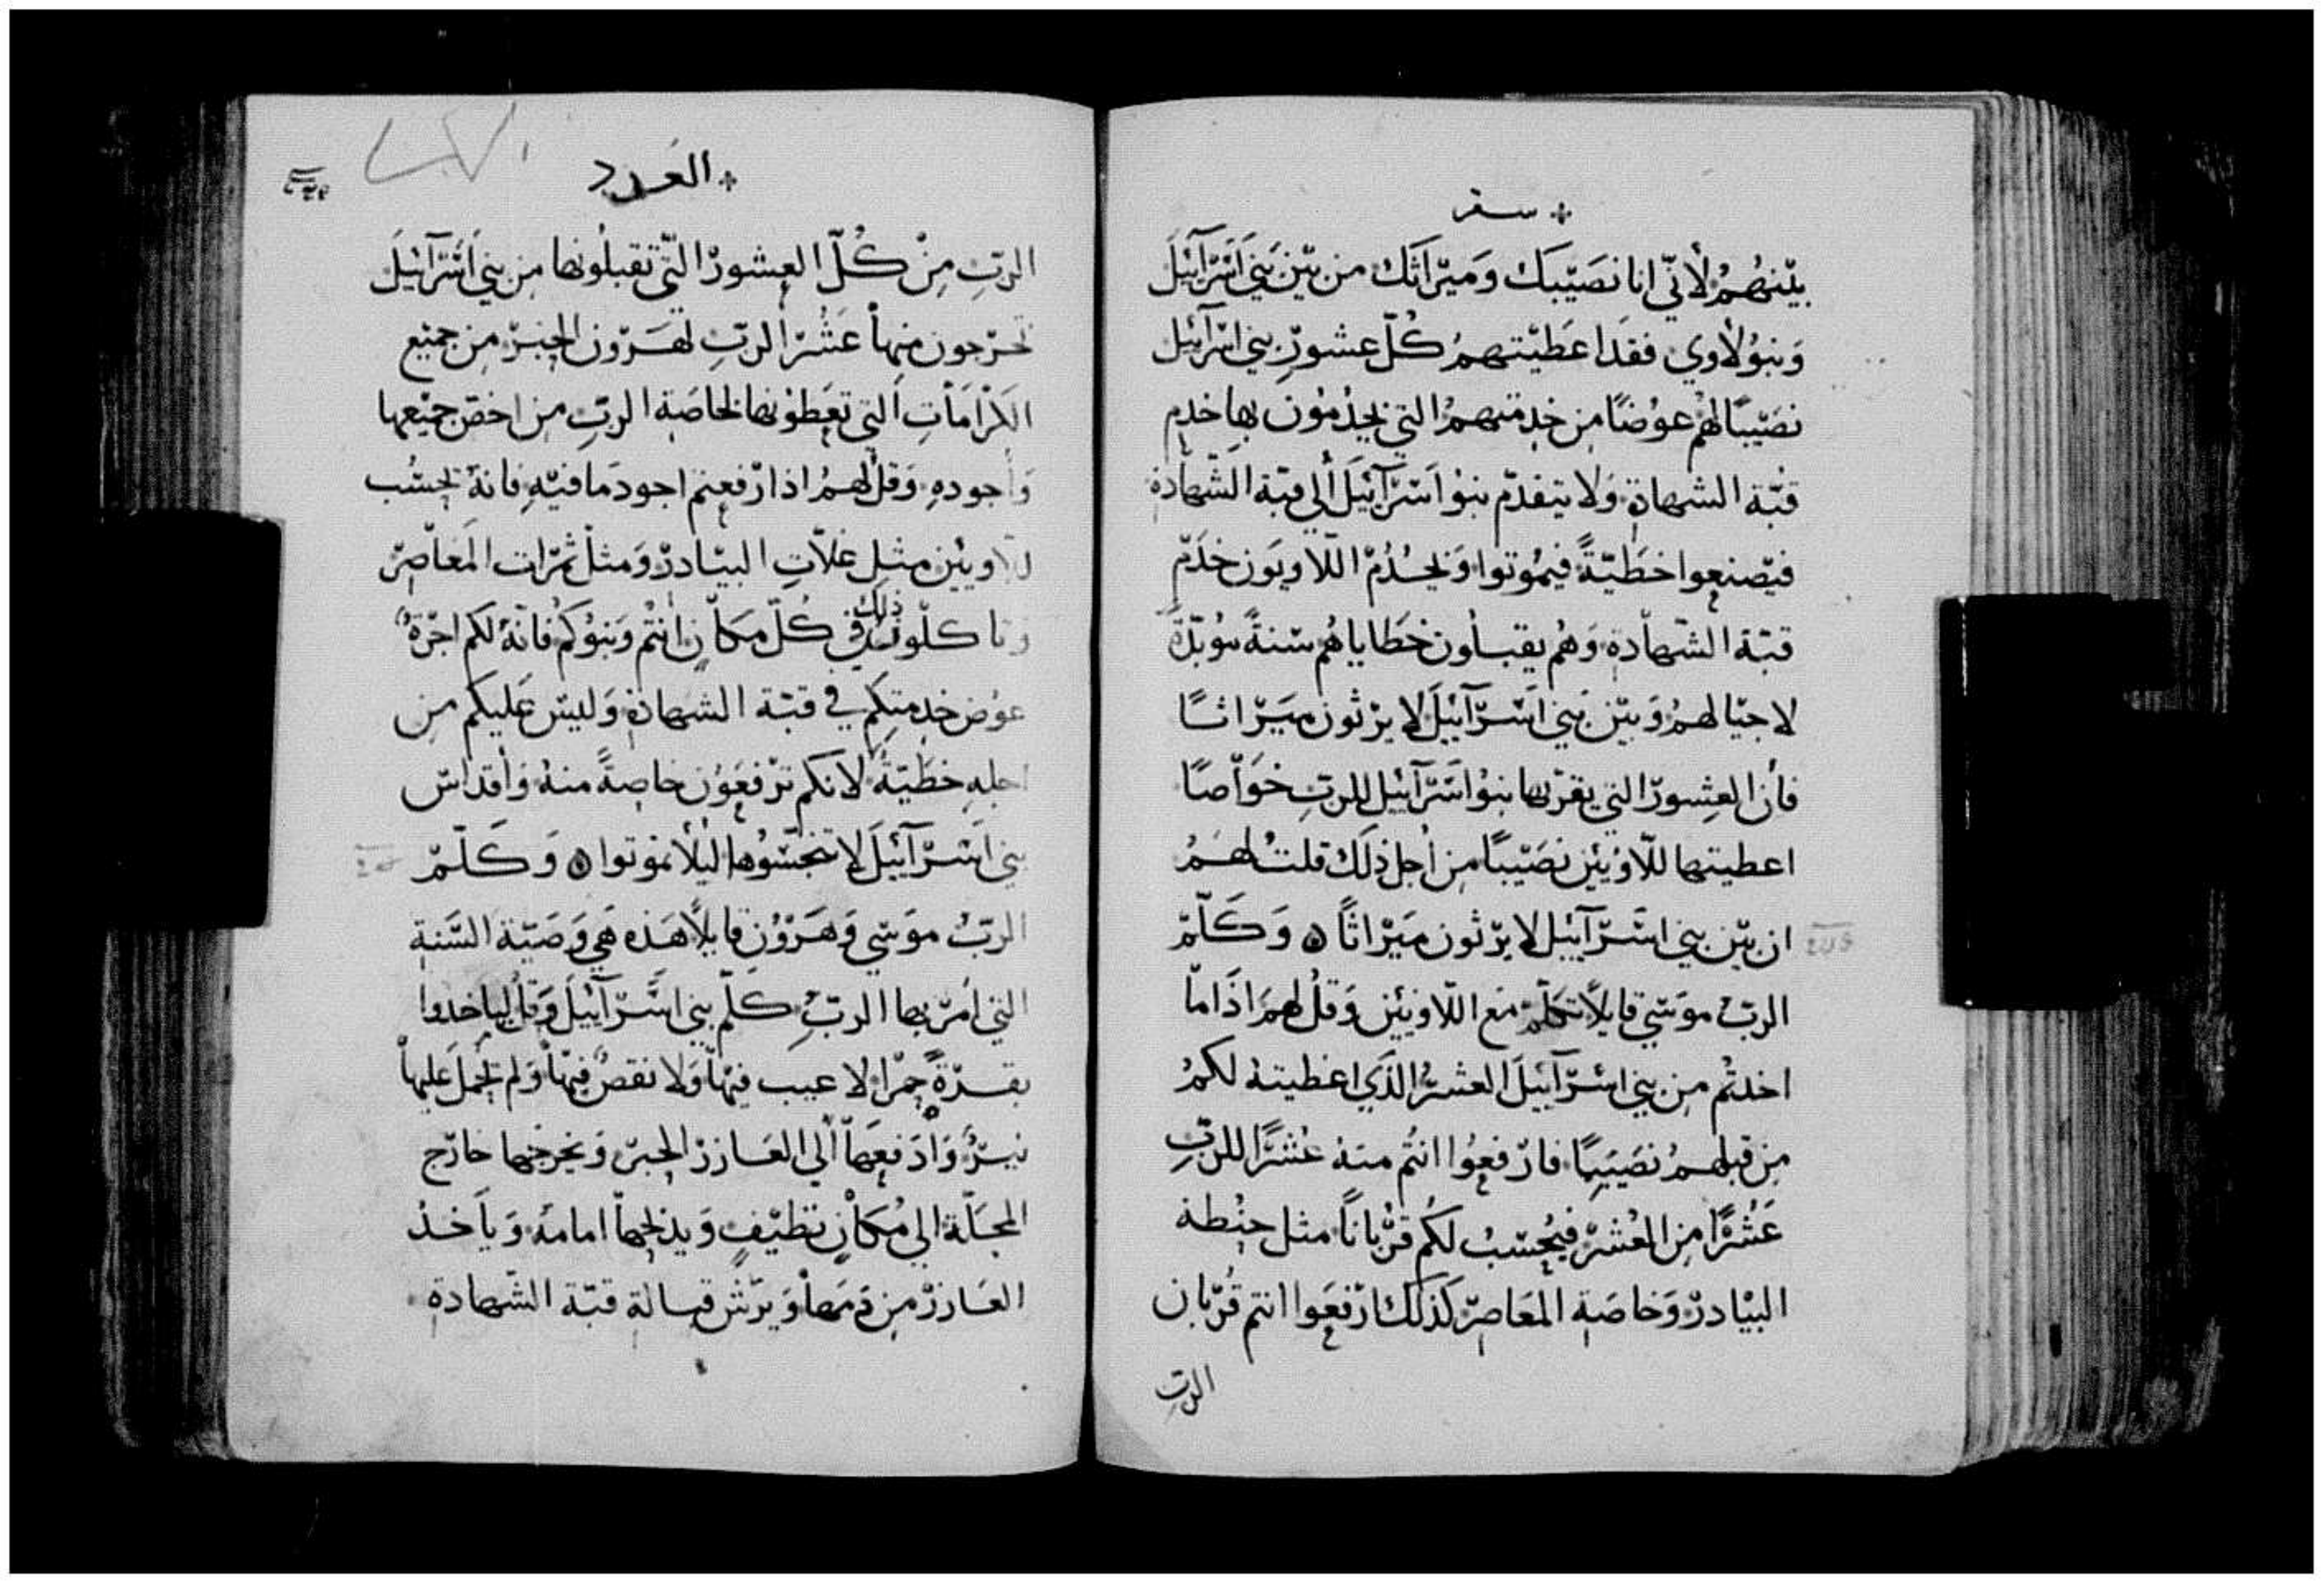 سفر
بيّنهُمُ لأنّي انا نصَيّبَك وَميّراثك من بيّن بَني اَسّرَآئيَل
وَبنوُ لاوي فقدَ اعَطيّتهمُ كُلّ عشورِ بني اسّرآئيل
نصَيّبًا لهُمُ عوُضًا مِن خدمتهمُ التي يخدُمُون بها خدم
قبّة الشهادة وَلا يتقدّم بنوُ اَسّرَآئيَل ألي قبّة الشّهادة
فيّصنعوا خطَيّةً فيمُوتوا وَيخدُمّ اللّاويَون خدَمّ
قبّة الشّهاّدة وَهُم يقبلون خطَاياهُم سّنةً موُبدّةً
لاجيّالهمُ وَبيّن بَني اَسّرّآئيَل لا يرّثون ميَرّاثًا
فأن العِشورّ التي يقرّبها بنوُ اَسّرّآئيل للربّ خوَاّصًا
اعطيتها للّاوُيئين نصَيّبًا مِن أجل ذلَك قلتُ لهمُ
ان بيّن بني اسَرّآئيل لا يرّثون ميَرّاثًا ه وَكلّمّ
الربُ موسَي قايلًا تكلّمّ مَع اللّاويئين وَقلُ لهمَ اذَا ماّ
اخدتُم مِن بني اسّرّآئيلَ العشرُ الذّي اعَطيتهُ لكمُ
مِن قبلهمُ نصَيَبًا فارّفعوُا انتُم منهُ عُشرًا للربِّ
عَشُرًّا مِن العُشرّ فيُحسّبُ لكُم قرُّباناً مثل حِنطة
البيّادرّ وَخاصَة المعَاصِرّ كذلكَ ارّفعَوا انتم قُرّبان
الربّ
العَدد
الربِّ مِنْ كُلّ العِشورّ التّي تقبلُونها مِن بني اَسّرّآئيَلَ
تخرّجون منِهاْ عَشُرّ الربّ لهرّون الحِبرّ مِن جميّع
الكرّامَاتِ التي تعَطوُنها لخاصَة الربّ مِن اخصّ جميّعها
وَأجودهِ وَقلُ لهمُ اذا رّفعتم اجود مَا فيّه فانهُ يحسُب
للّاويئين مثِل غلاّتِ البيّادرّ وَمثلْ ثمرّات المعَاّصِرّ
وتاكلّون ذلك في كُلّ مكاّن انتُم وَبنوُكمُ فانّهُ لكم اجرّةُ
عوُض خدمتِكِم في قبّة الشهادة وَليسّ عَليكم مِن
اجلهِ خطَيّةُ لانكم ترّفعَوُن خاصِةً منهُ وَأقداسّ
بني اَسّرّآئيَلَ لا تنجسّوُها ليُلّا تموَتوا ه وَكلّمّ
الربُ موَسّي وَهَرّوُن قايلًا هَذه هَي وَصَيّة السَّنة
التي اَمّرّ بها الربُّ كلّم بني اسَّرّآئيلَ وَقلُ لياخدوا
بقرّةً حمرّا لا عيب فيهّا وَلا نقصٌ فيهّا وَلم يحُملَ عَليهاّ
نيرُّ وَادَفعوهاّ ألي العَازرّ الحِبرّ وَيخرجَها خارّج
المحَلّة الي مُكانٍ نظيّفٍ وَيذبحهاّ امامهُ وَياَخذُ
العَازرّ مِن دَمهاْ وَيرّش قبالة قبّة الشّهادة